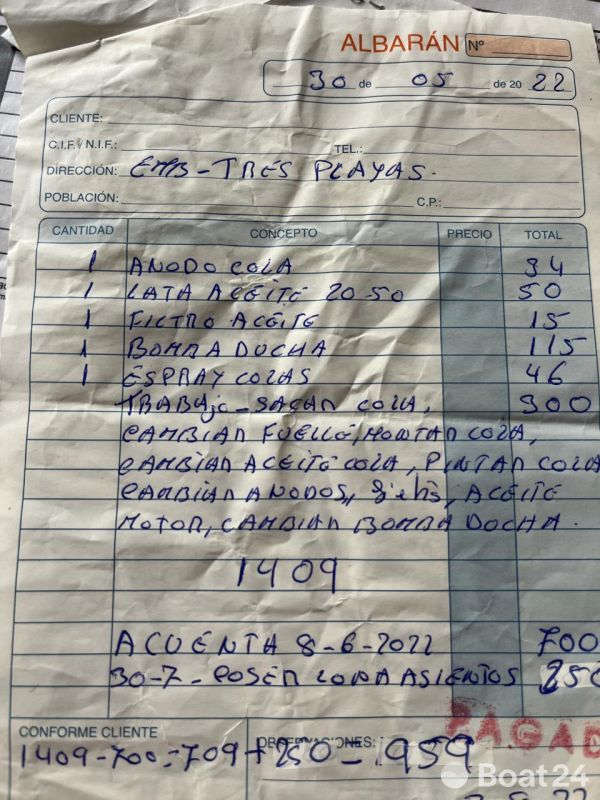 ALBARÁN Nº
30 de 05 de 20 22
CLIENTE:
C.I.F./N.I.F.: TEL.:
DIRECCIÓN: EMB-TRES PLAYAS.
POBLACIÓN: C.P.:
CANTIDAD CONCEPTO PRECIO TOTAL
1 ANODO COLA 94
1 LATA ACEITE 20-50 50
1 FILTRO ACEITE 15
1 BOMBA DUCHA 115
1 ESPRAY COLAS 46
TRABAJO-SACAR COLA, 300
CAMBIAR FUELLE, MONTAR COLA,
CAMBIAR ACEITE COLA, PINTAR COLA
CAMBIAR ANODOS, ACEITE
MOTOR, CAMBIAR BOMBA DUCHA.
1409
ACUENTA 8-6-2022 700
30-7-POSER LONA ASIENTOS 250
PAGAD
CONFORME CLIENTE OBSERVACIONES:
1409-700=709+250-959
Boat24